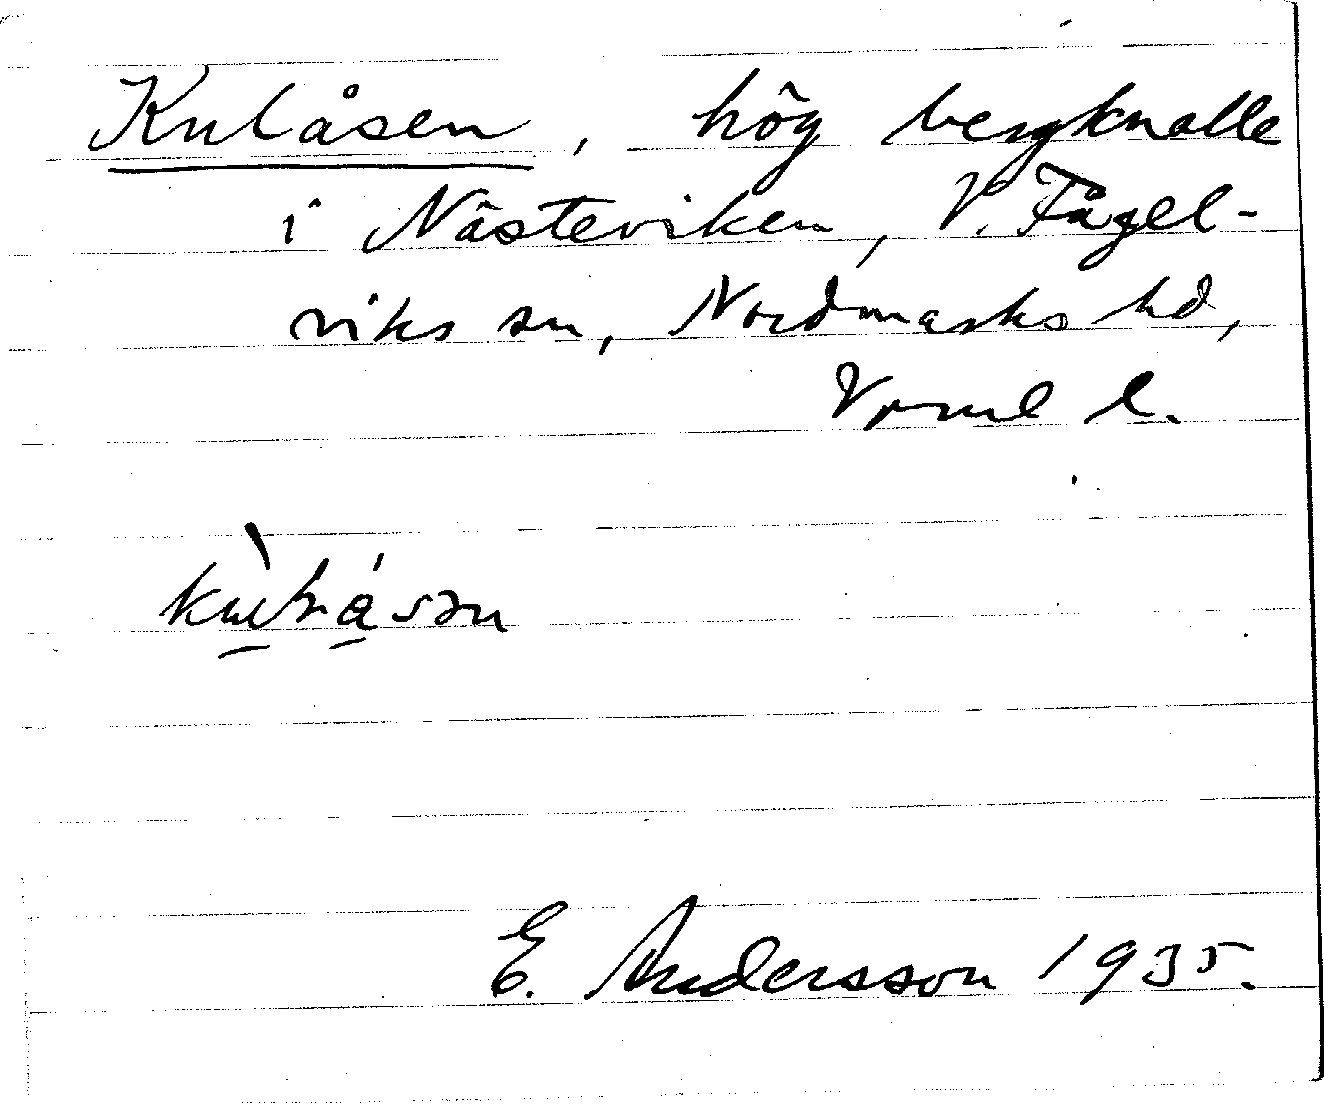 Kulåsen, hög bergknalle
i Näste viken, V. Fågel-
viks sn, Nordmarks hd,
Vrml l.
E. Andersson 1935.